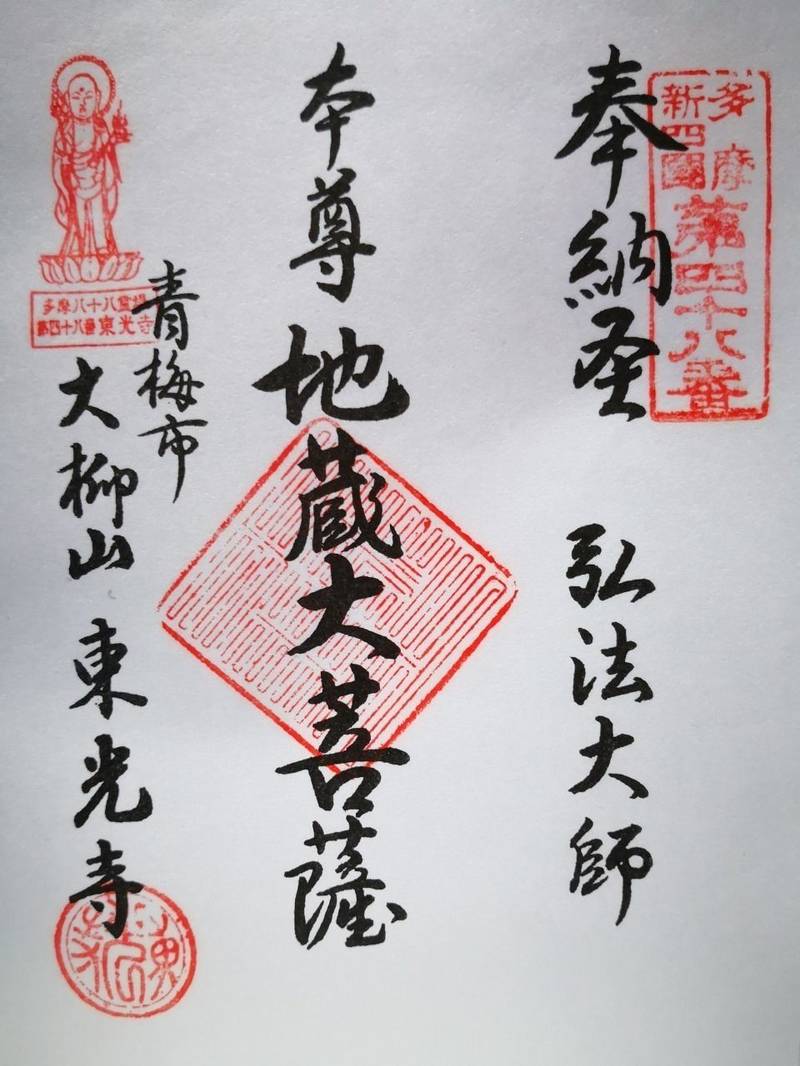 多摩
新四國
第四十八番
奉納圣 弘法大師
本尊 地蔵大菩薩
多摩八十八霊場
第四十八番東光寺
青梅市
大柳山 東光寺